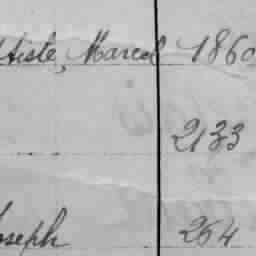 tiste, Marcel 1860
2133
Joseph 264